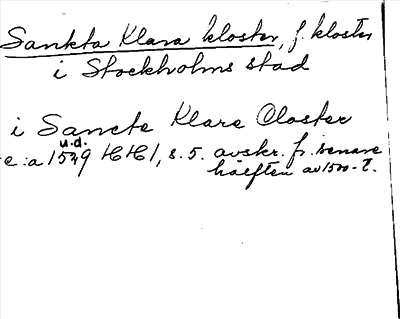 Sankta Klara kloster, f. kloster
i Stockholms stad
i Sancte Klare Closter
u.d.
e: a 1549 HH 1, s. 5. avskr. fr. senare
hälften av 1500-t.